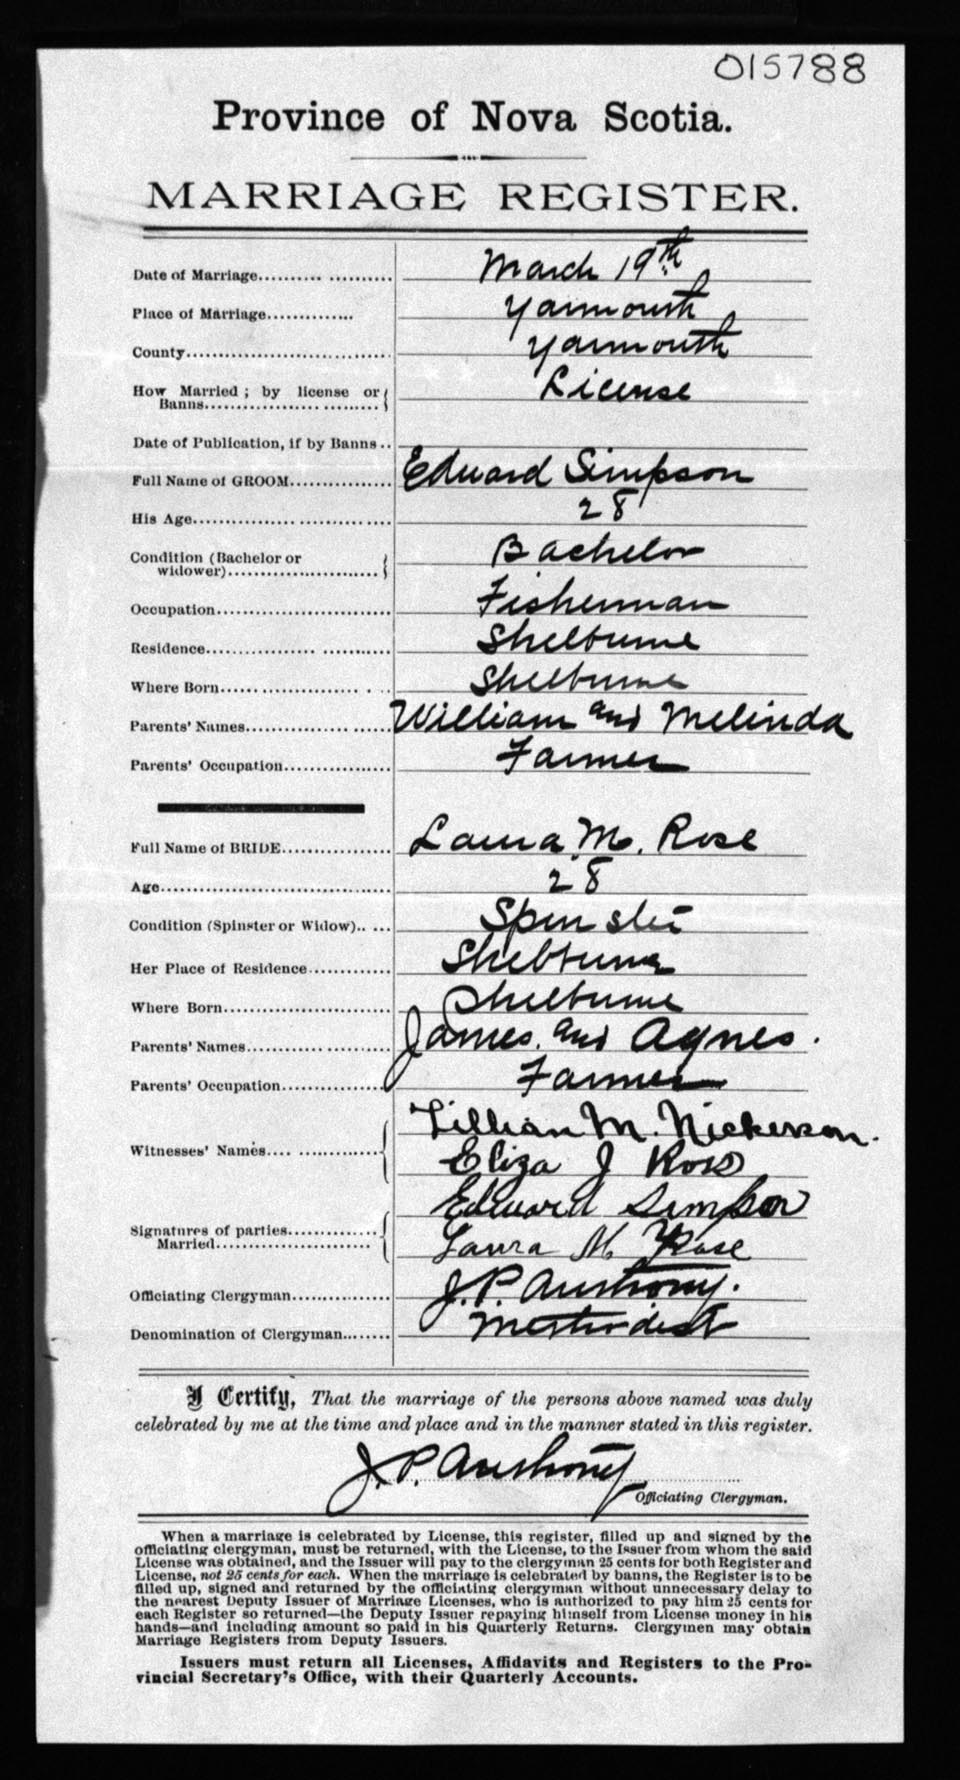 015788
Province of Nova Scotia.
MARRIAGE REGISTER.
Date of Marriage.......... .......... March 19th
Place of Marriage.............. Yarmouth
County................................. Yarmouth
How Married ; by license or License
Banns.................. .........
Date of Publication, if by Banns ..
Full Name of GROOM................ Edward Simpson
His Age.................. .......... 28
Condition (Bachelor or Bachelor
widower)........................
Occupation............................ Fisherman
Residence.................. ............ Shelburne
Where Born...... ................ . .. Shelburne
Parents' Names............. ............ William and Melinda
Parents' Occupation.................. Farmer
Full Name of BRIDE................. Laura M. Rose
Age..................................... 28
Condition (Spinster or Widow).. ... Spinster
Her Place of Residence............. Shelburne
Where Born............................ Shelburne
Parents' Names............. ............ James. and Agnes.
Parents' Occupation.................. Farmer
Witnesses' Names.... .............. Lillian M. Nickerson.
Eliza J Ross
Signatures of parties............... Edward Simpson
Married......................... Laura M. Rose
Officiating Clergyman................ J. P. Anthony.
Denomination of Clergyman........ Methodist
I Certify, That the marriage of the persons above named was duly
celebrated by me at the time and place and in the manner stated in this register.
J. P. Anthony
Officiating Clergyman.
When a marriage is celebrated by License, this register, filled up and signed by the
officiating clergyman, must be returned, with the License, to the Issuer from whom the said
License was obtained, and the Issuer will pay to the clergyman 25 cents for both Register and
License, not 25 cents for each. When the marriage is celebrated by banns, the Register is to be
filled up, signed and returned by the officiating clergyman without unnecessary delay to
the nearest Deputy Issuer of Marriage Licenses, who is authorized to pay him 25 cents for
each Register so returned—the Deputy Issuer repaying himself from License money in his
hands—and including amount so paid in his Quarterly Returns. Clergymen may obtain
Marriage Registers from Deputy Issuers.
Issuers must return all Licenses, Affidavits and Registers to the Pro-
vincial Secretary's Office, with their Quarterly Accounts.